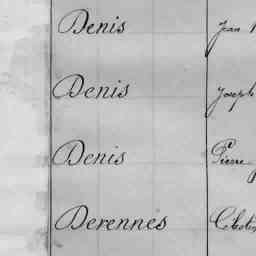 Denis Jean
Denis Joseph
Denis Pierre
Derennes